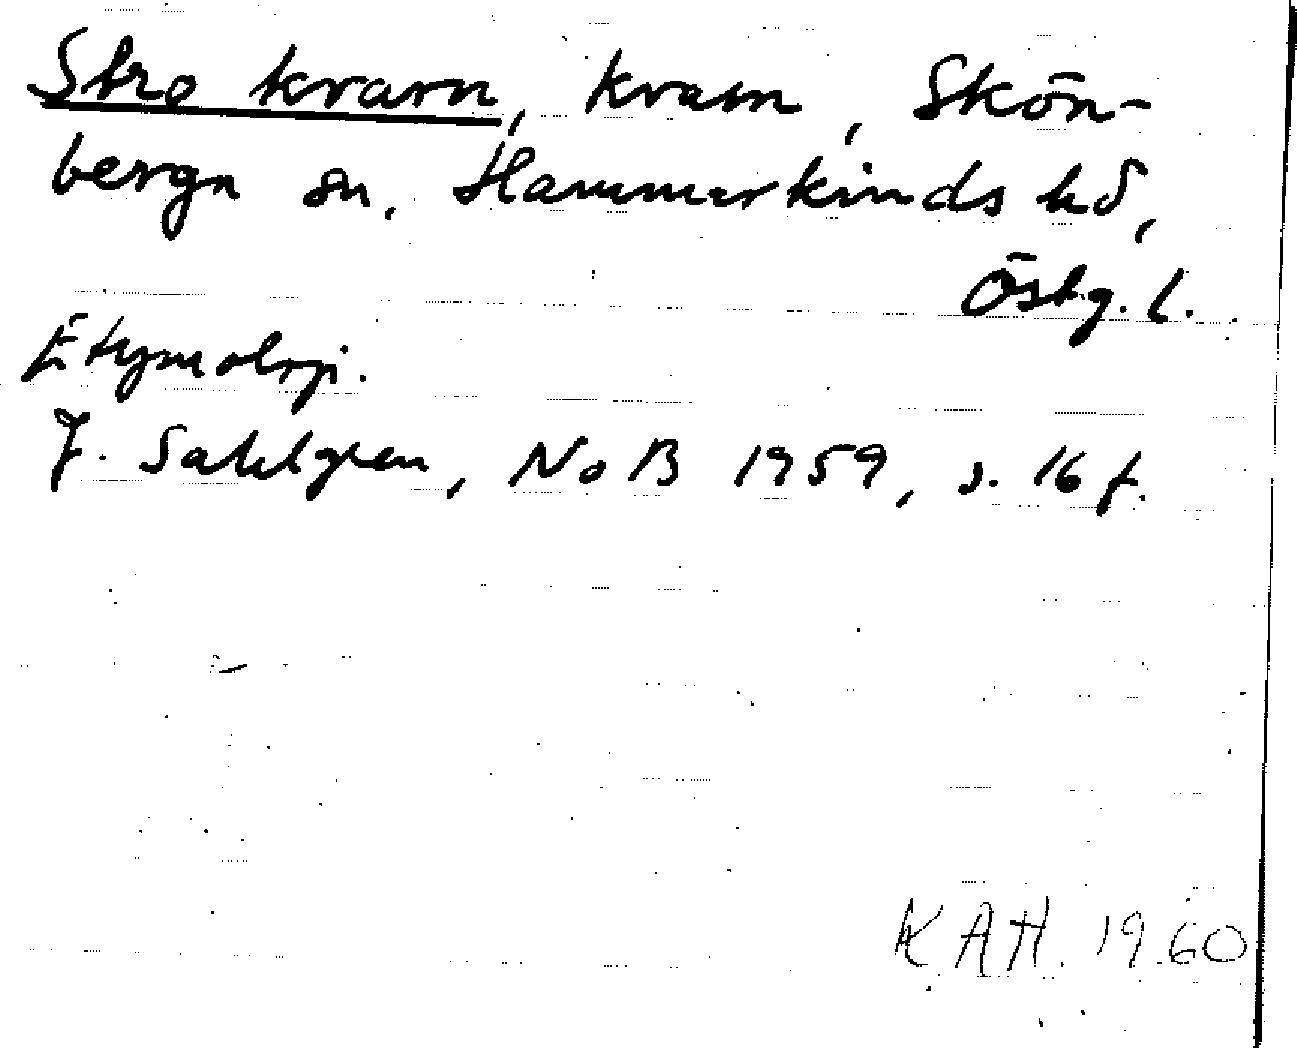 Stro kvarn, kvarn, Skön-
berga sn, Hammarkinds hd,
Östg. l.
Etymologi.
J. Sahlgren, NoB 1959, s. 16 f.
KAH 1960